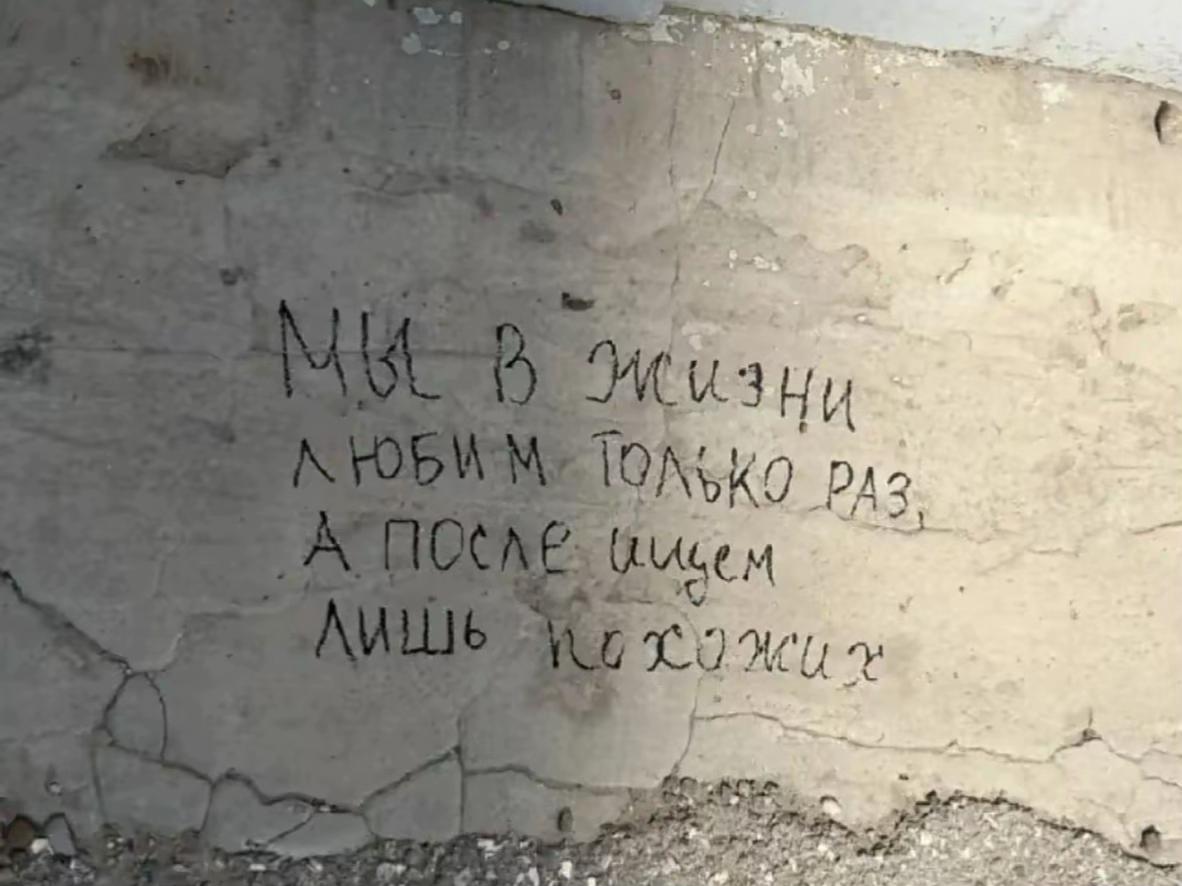 Мы в жизни
любим только раз,
А после ищем
лишь похожих